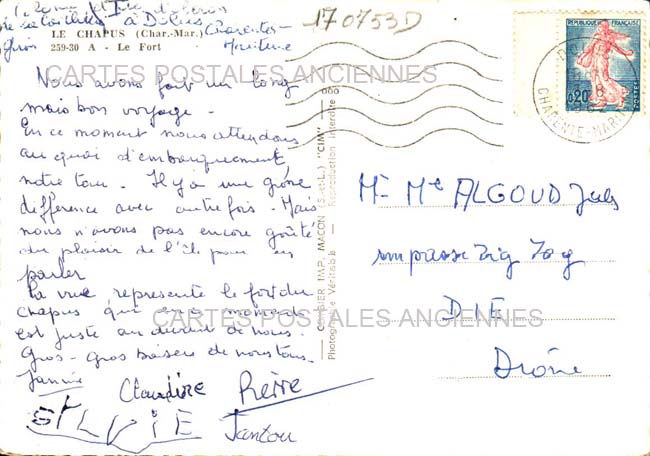 à Dolus
LE CHAPUS (Char.-Mar.)
259-30 A - Le Fort
Charentes
Maritime
170753D
RÉPUBLIQUE FRANÇAISE
0,20
POSTES
CHARENTE-MARITIME
CARTES POSTALES ANCIENNES
Nous avons fait un long
mais bon voyage.
En ce moment nous attendons
au quai d'embarquement,
notre tour. Il y a une grosse
différence avec autrefois. Mais
nous n'avons pas encore goûté
du plaisir de l'île pour en
parler
La vue représente le fort du
chapus qui en ce moment
est juste au devant de nous.
Gros - Gros baisers de nous tous.
Janine Claudine Pierre
SYLVIE Tantou
COMBIER IMP. MACON (S.-et-L.) "CIM"
Photographie Véritable - Reproduction Interdite
Mr Me ALGOUD Jules
impasse Zig Zag
DIE
Drôme
CARTES POSTALES ANCIENNES